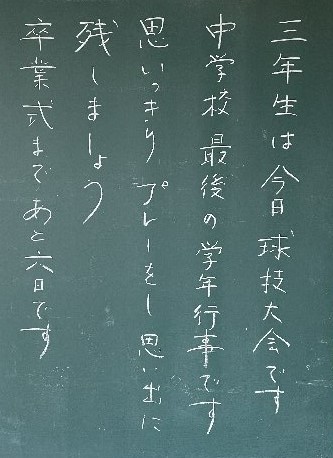 三年生は今日球技大会です
中学校最後の学年行事です
思いっきりプレーをし思い出に
残しましょう
卒業式まであと六日です